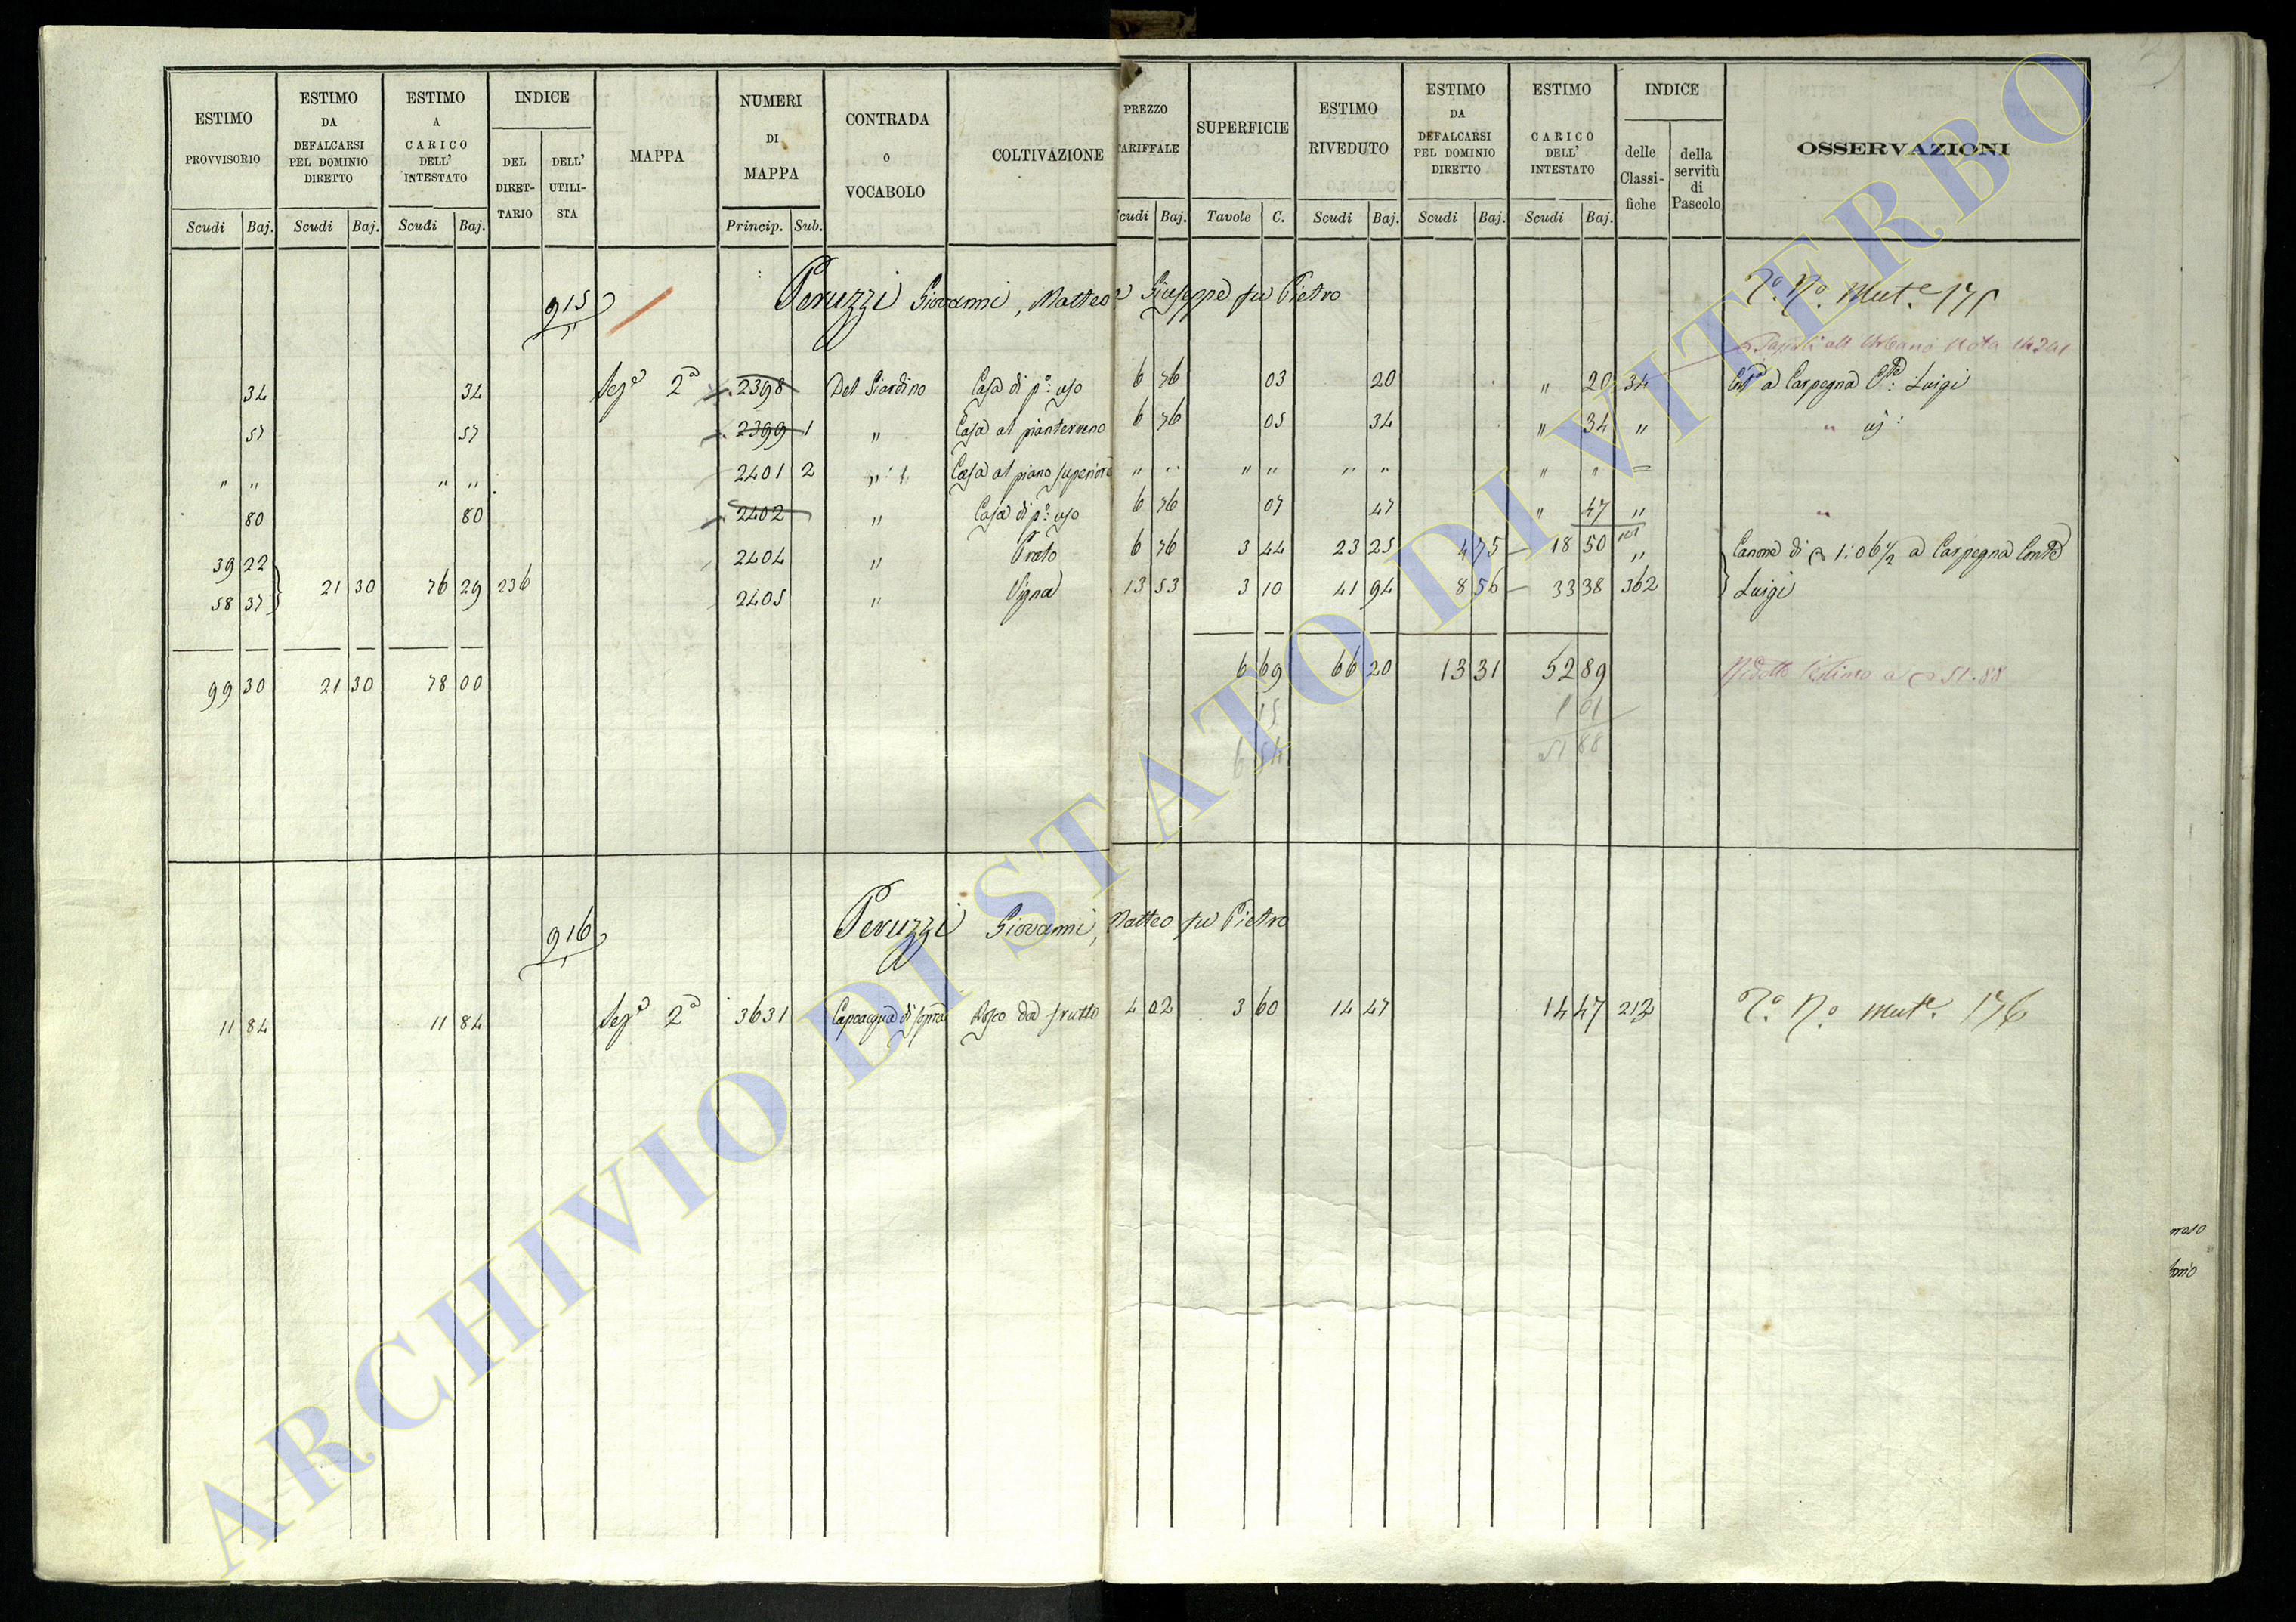 ESTIMO PROVVISORIO Scudi Baj.
ESTIMO DA DEFALCARSI PEL DOMINIO DIRETTO Scudi Baj.
ESTIMO A CARICO DELL' INTESTATO Scudi Baj.
INDICE DEL DIRET- TARIO DELL' UTILI- STA
MAPPA
NUMERI DI MAPPA Princip. Sub.
CONTRADA O VOCABOLO
COLTIVAZIONE
PREZZO TARIFFALE Scudi Baj.
SUPERFICIE Tavole C.
ESTIMO RIVEDUTO Scudi Baj.
ESTIMO DA DEFALCARSI PEL DOMINIO DIRETTO Scudi Baj.
ESTIMO A CARICO DELL' INTESTATO Scudi Baj.
INDICE delle Classi- fiche della servitù di Pascolo
OSSERVAZIONI
915 Peruzzi Giovanni, Matteo e Giuseppe fu Pietro
34 34 Segª 2ª 2398 Del Giardino Casa di pº: uso 6 76 03 20 " 20 34 a Carpegna Cte: Luigi
57 57 2399 1 " Casa al pianterreno 6 76 05 34 " 34 "
" " " " 2401 2 " Casa al piano superiore " " " " " " " " =
80 80 2402 " Casa di pº: uso 6 76 07 47 " 47 " "
39 22 2404 " Prato 6 76 3 44 23 25 4 75 18 50 " Canone di 1:06½ a Carpegna Conte
58 37 21 30 76 29 236 2405 " Vigna 13 53 3 10 41 94 8 56 33 38 362 Luigi
99 30 21 30 78 00 6 69 66 20 13 31 52 89 Ridotto l'Estimo a 51.88
15 1 01
6 54 51 88
916 Peruzzi Giovanni, Matteo fu Pietro
11 84 11 84 Segª 2ª 3631 Capoacqua di sopra Bosco da frutto 4 02 3 60 14 47 14 47 212 Nº Mutе. 176
ARCHIVIO DI STATO DI VITERBO